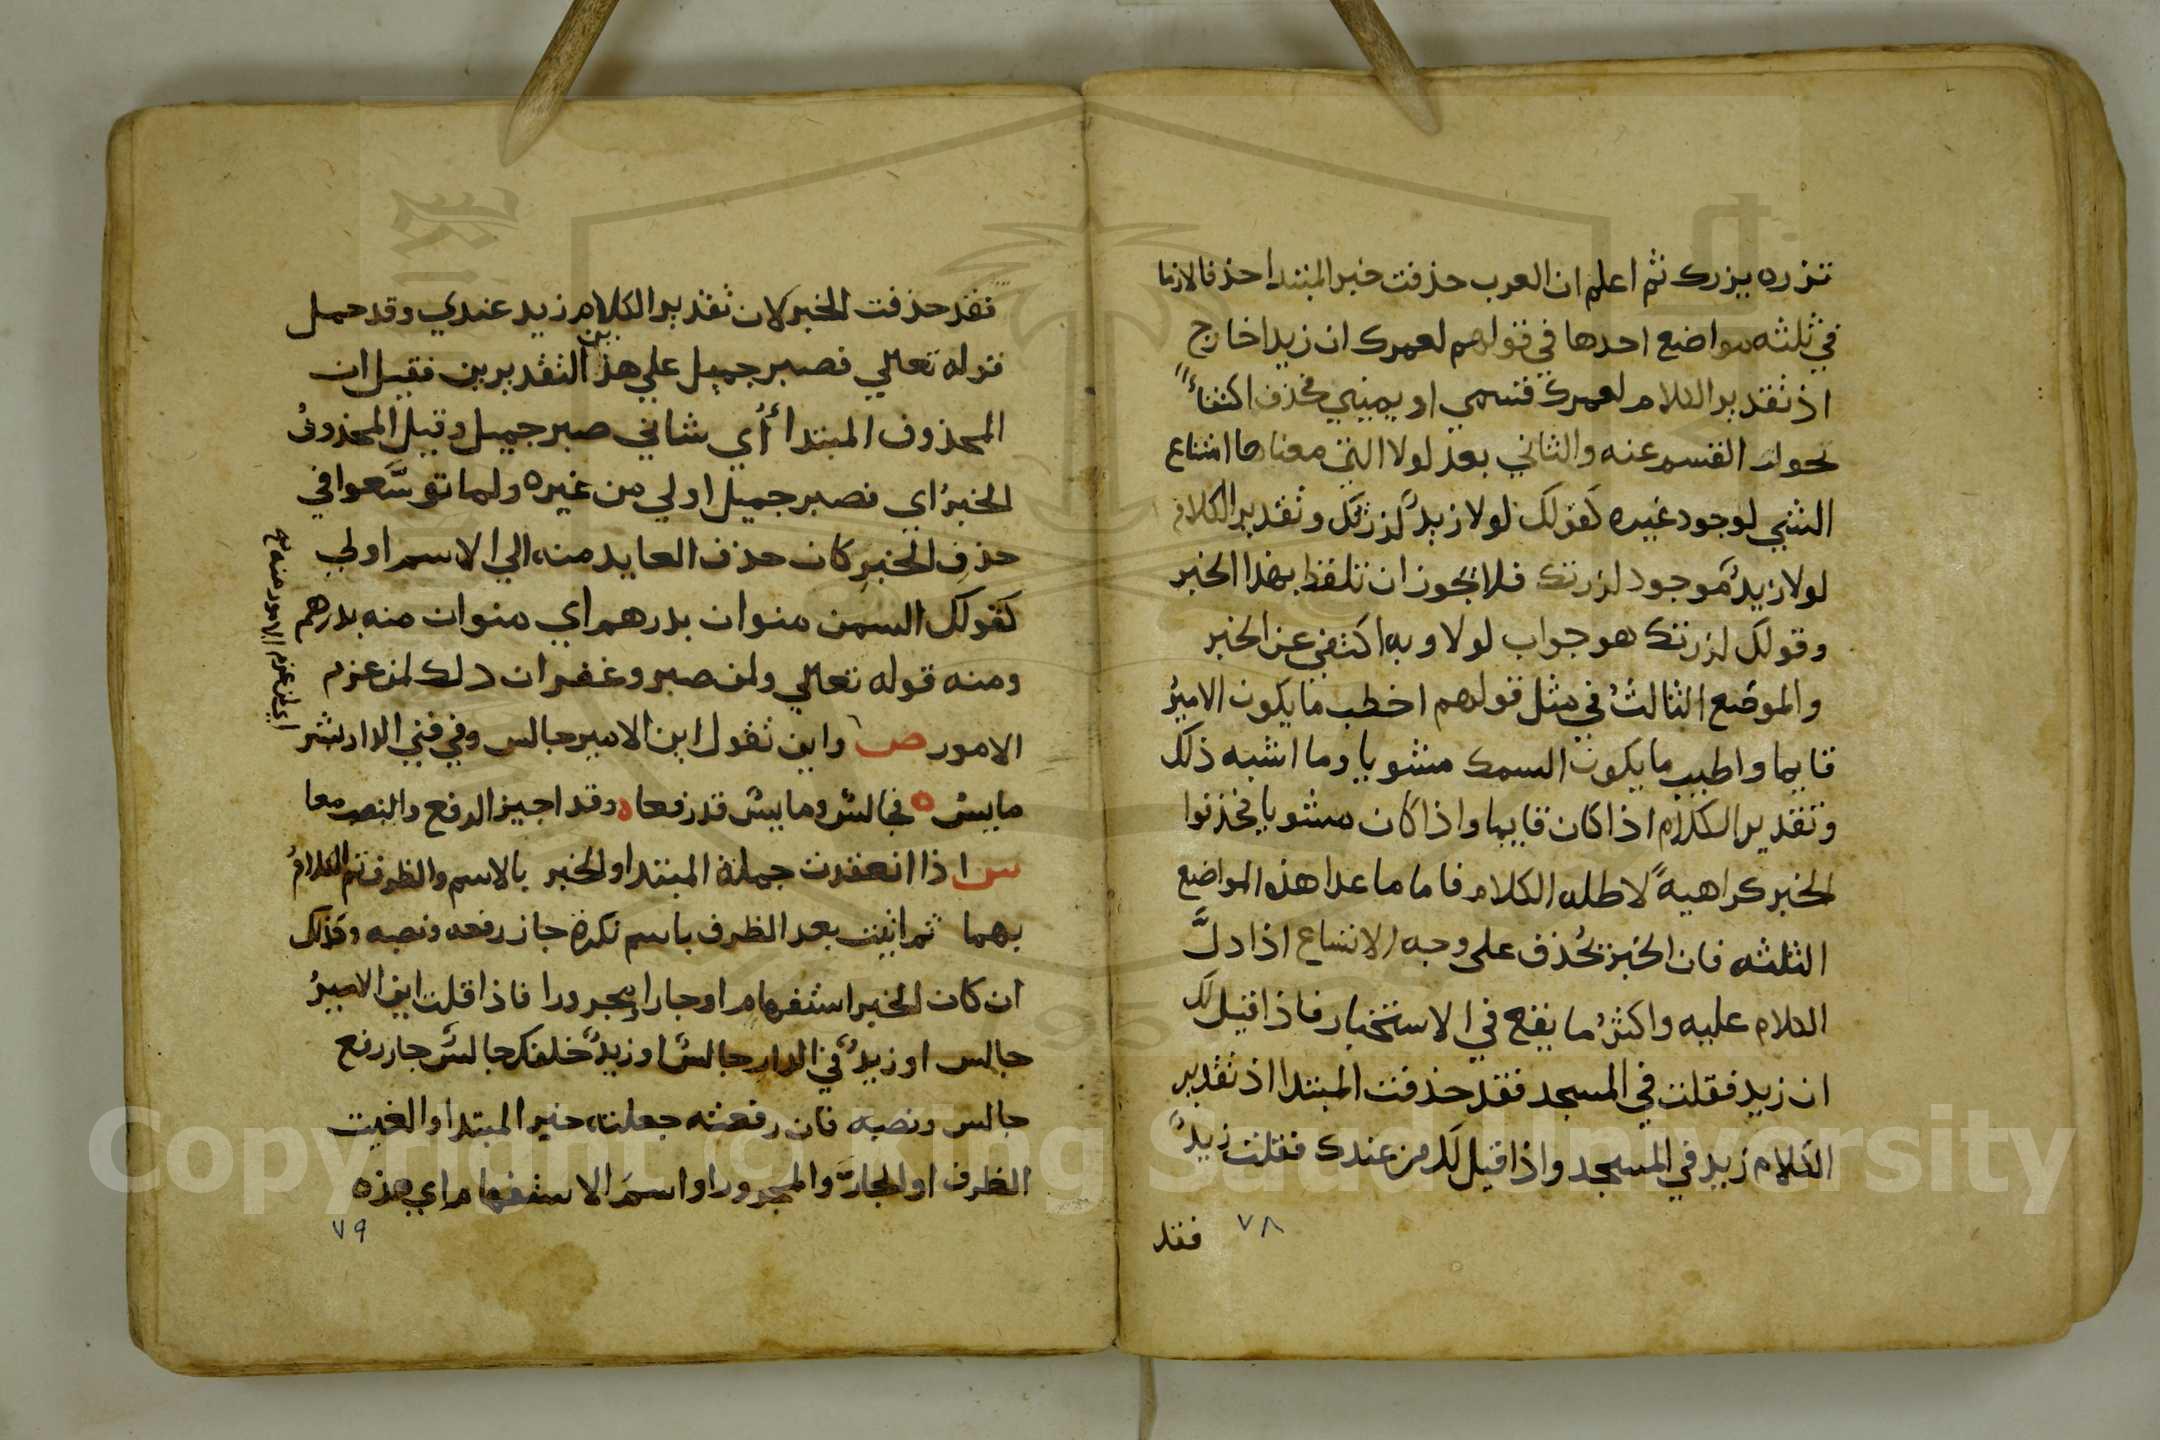 تزره يزرك ثم اعلم ان العرب حذفت خبر المبتدا حذفا لازما
في ثلثه مواضع احدها في قولهم لعمرك ان زيدا خارج
اذ تقدير الكلام لعمرك قسمي او يميني فحذف اكتفاءً
بجواب القسم عنه والثاني بعد لولا التي معناها امتناع
الشي لوجود غيره كقولك لولا زيدٌ لزرتك وتقدير الكلام
لولا زيدٌ موجود لزرتك فلا يجوز ان تلفظ بهذا الخبر
وقولك لزرتك هو جواب لولا وبه اكتفي عن الخبر
والموضع الثالث في مثل قولهم اخطب ما يكون الاميرُ
قايما واطيب ما يكون السمك مشويا وما اشبه ذلك
وتقدير الكلام اذا كان قايما واذا كان مشويا فحذفوا
الخبر كراهيةً لاطاله الكلام فاما ما عدا هذه المواضع
الثلثه فان الخبر يُحذف على وجه الاتساع اذا دلَّ
الكلام عليه واكثرُ ما يقع في الاستخبار فاذا قيل لك
اين زيد فقلت في المسجد فقد حذفت المبتدا اذ تقدير
الكلام زيد في المسجد واذا قيل لك من عندك فقلت زيدٌ
فقد
٧٨
فقد حذفت الخبر لان تقدير الكلام زيد عندي وقد حمل
قوله تعالي فصبر جميل علي هذين التقديرين فقيل ان
المحذوف المبتدأ أي شاني صبر جميل وقيل المحذوفُ
الخبرُ اي فصبر جميل اولي من غيره ولما توسَّعوا في
حذفِ الخبرِ كان حذف العايد منه الي الاسم اولي
كقولك السمن منوان بدرهم اي منوان منه بدرهم
ومنه قوله تعالي ولمن صبر وغفر ان ذلك لمن عزم
الامور ص واين تقول اين الامير جالس وفي فني الدار بشر
مايس ه فجالسٌ ومايسٌ قد رفعا ه وقد اجيز الرفع والنصب معا
س اذا انعقدت جملة المبتدا والخبر بالاسم والظرف تم الكلامُ
بهما ثم اتيت بعد الظرف باسم نكرة جاز رفعه ونصبه وكذلك
ان كان الخبر استفهام او جارا ومجرورا فاذا قلت اين الاميرُ
جالس او زيدٌ في الدار جالسٌ او زيدٌ خلفك جالسٌ جاز رفع
جالس ونصبه فان رفعته جعلته خبر المبتدا والغيت
الظرف او الجارَّ والمجرور او اسمَ الاستفهام اي هذه
٧٩
اي لمن عزم الامور منه